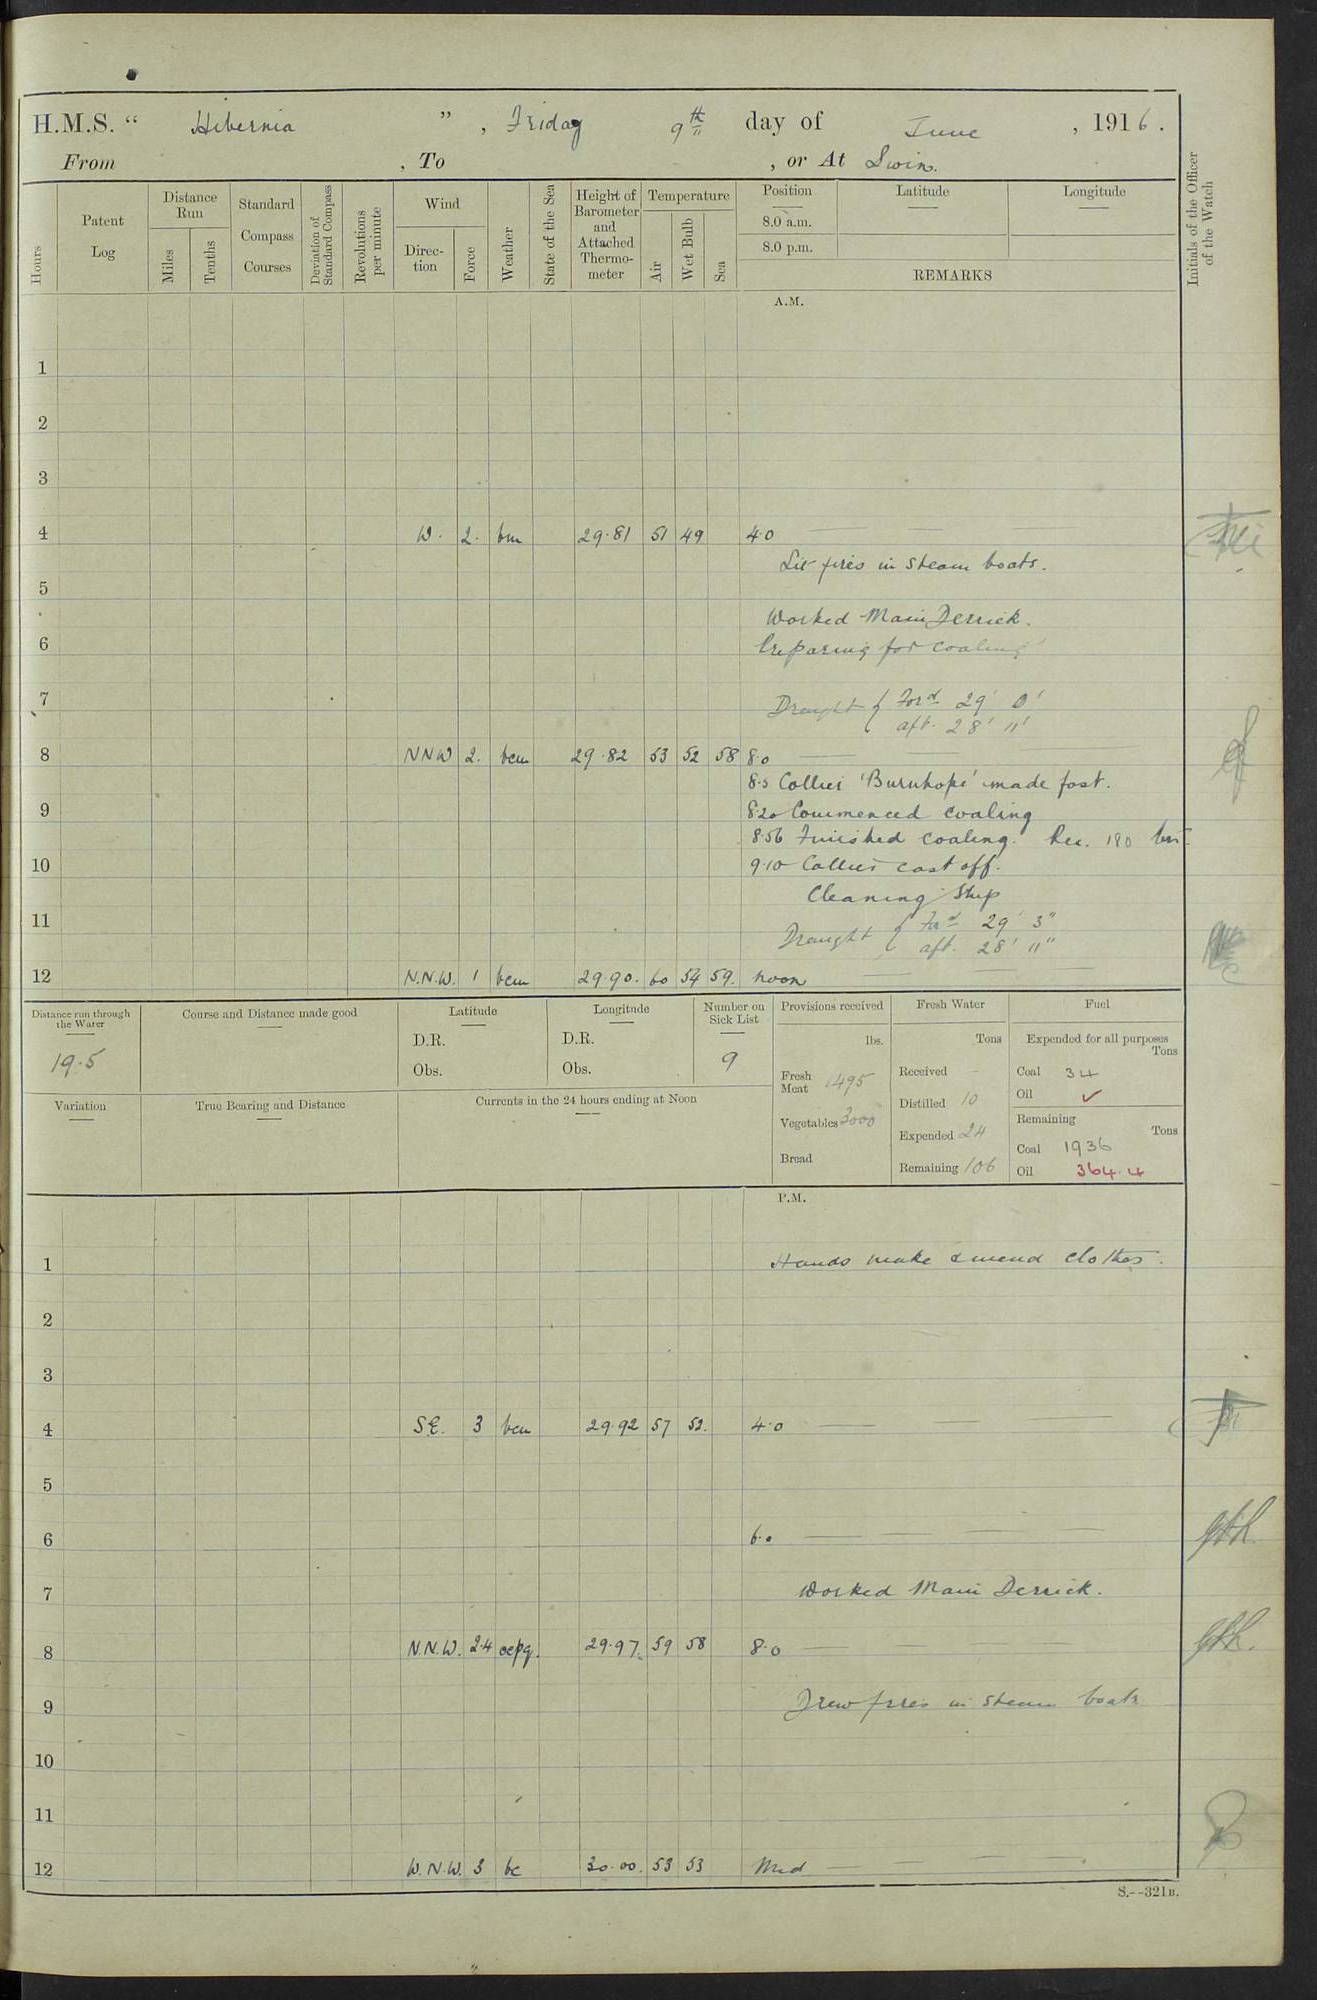 H.M.S. “ Hibernia ” , Friday 9th day of June , 1916.
From , To , or At Swin.
Hours
Patent Log
Distance Run
Miles
Tenths
Standard Compass Courses
Deviation of Standard Compass
Revolutions per minute
Wind
Direction
Force
Weather
State of the Sea
Height of Barometer and Attached Thermometer
Temperature
Air
Wet Bulb
Sea
Position
8.0 a.m.
8.0 p.m.
Latitude
Longitude
REMARKS
Initials of the Officer of the Watch
A.M.
1
2
3
4 W. 2. bm 29.81 51 49 4.0
Lit fires in steam boats.
5
Worked Main Derrick.
6 Preparing for coaling
7 Draught { Ford 29' 0'
aft. 28' 11'
8 NNW 2. bcm 29.82 53 52 58 8.0
8.5 Collier 'Burnhope' made fast.
9 8.20 Commenced coaling
8.56 Finished coaling. Rec. 180 tons.
10 9.10 Collier cast off.
Cleaning Ship
11 Draught { Ford 29' 3"
aft. 28' 11"
12 N.N.W. 1 bcm 29.90. 60 54 59. noon
Distance run through the Water
19.5
Course and Distance made good
Latitude
D.R.
Obs.
Longitude
D.R.
Obs.
Number on Sick List
9
Provisions received
lbs.
Fresh Meat 1495
Vegetables 3000
Bread
Fresh Water
Tons
Received -
Distilled 10
Expended 24
Remaining 106
Fuel
Expended for all purposes
Tons
Coal 34
Oil ✓
Remaining
Tons
Coal 1936
Oil 364.4
Variation
True Bearing and Distance
Currents in the 24 hours ending at Noon
P.M.
1 Hands make & mend clothes.
2
3
4 S.E. 3 bcm 29.92 57 52. 4.0
5
6 6.0
7 Worked Main Derrick.
8 N.N.W. 2.4 ocpq. 29.97. 59 58 8.0
9 Drew fires in steam boats
10
11
12 W.N.W. 3 bc 30.00. 53 53 Mid
S.--321B.